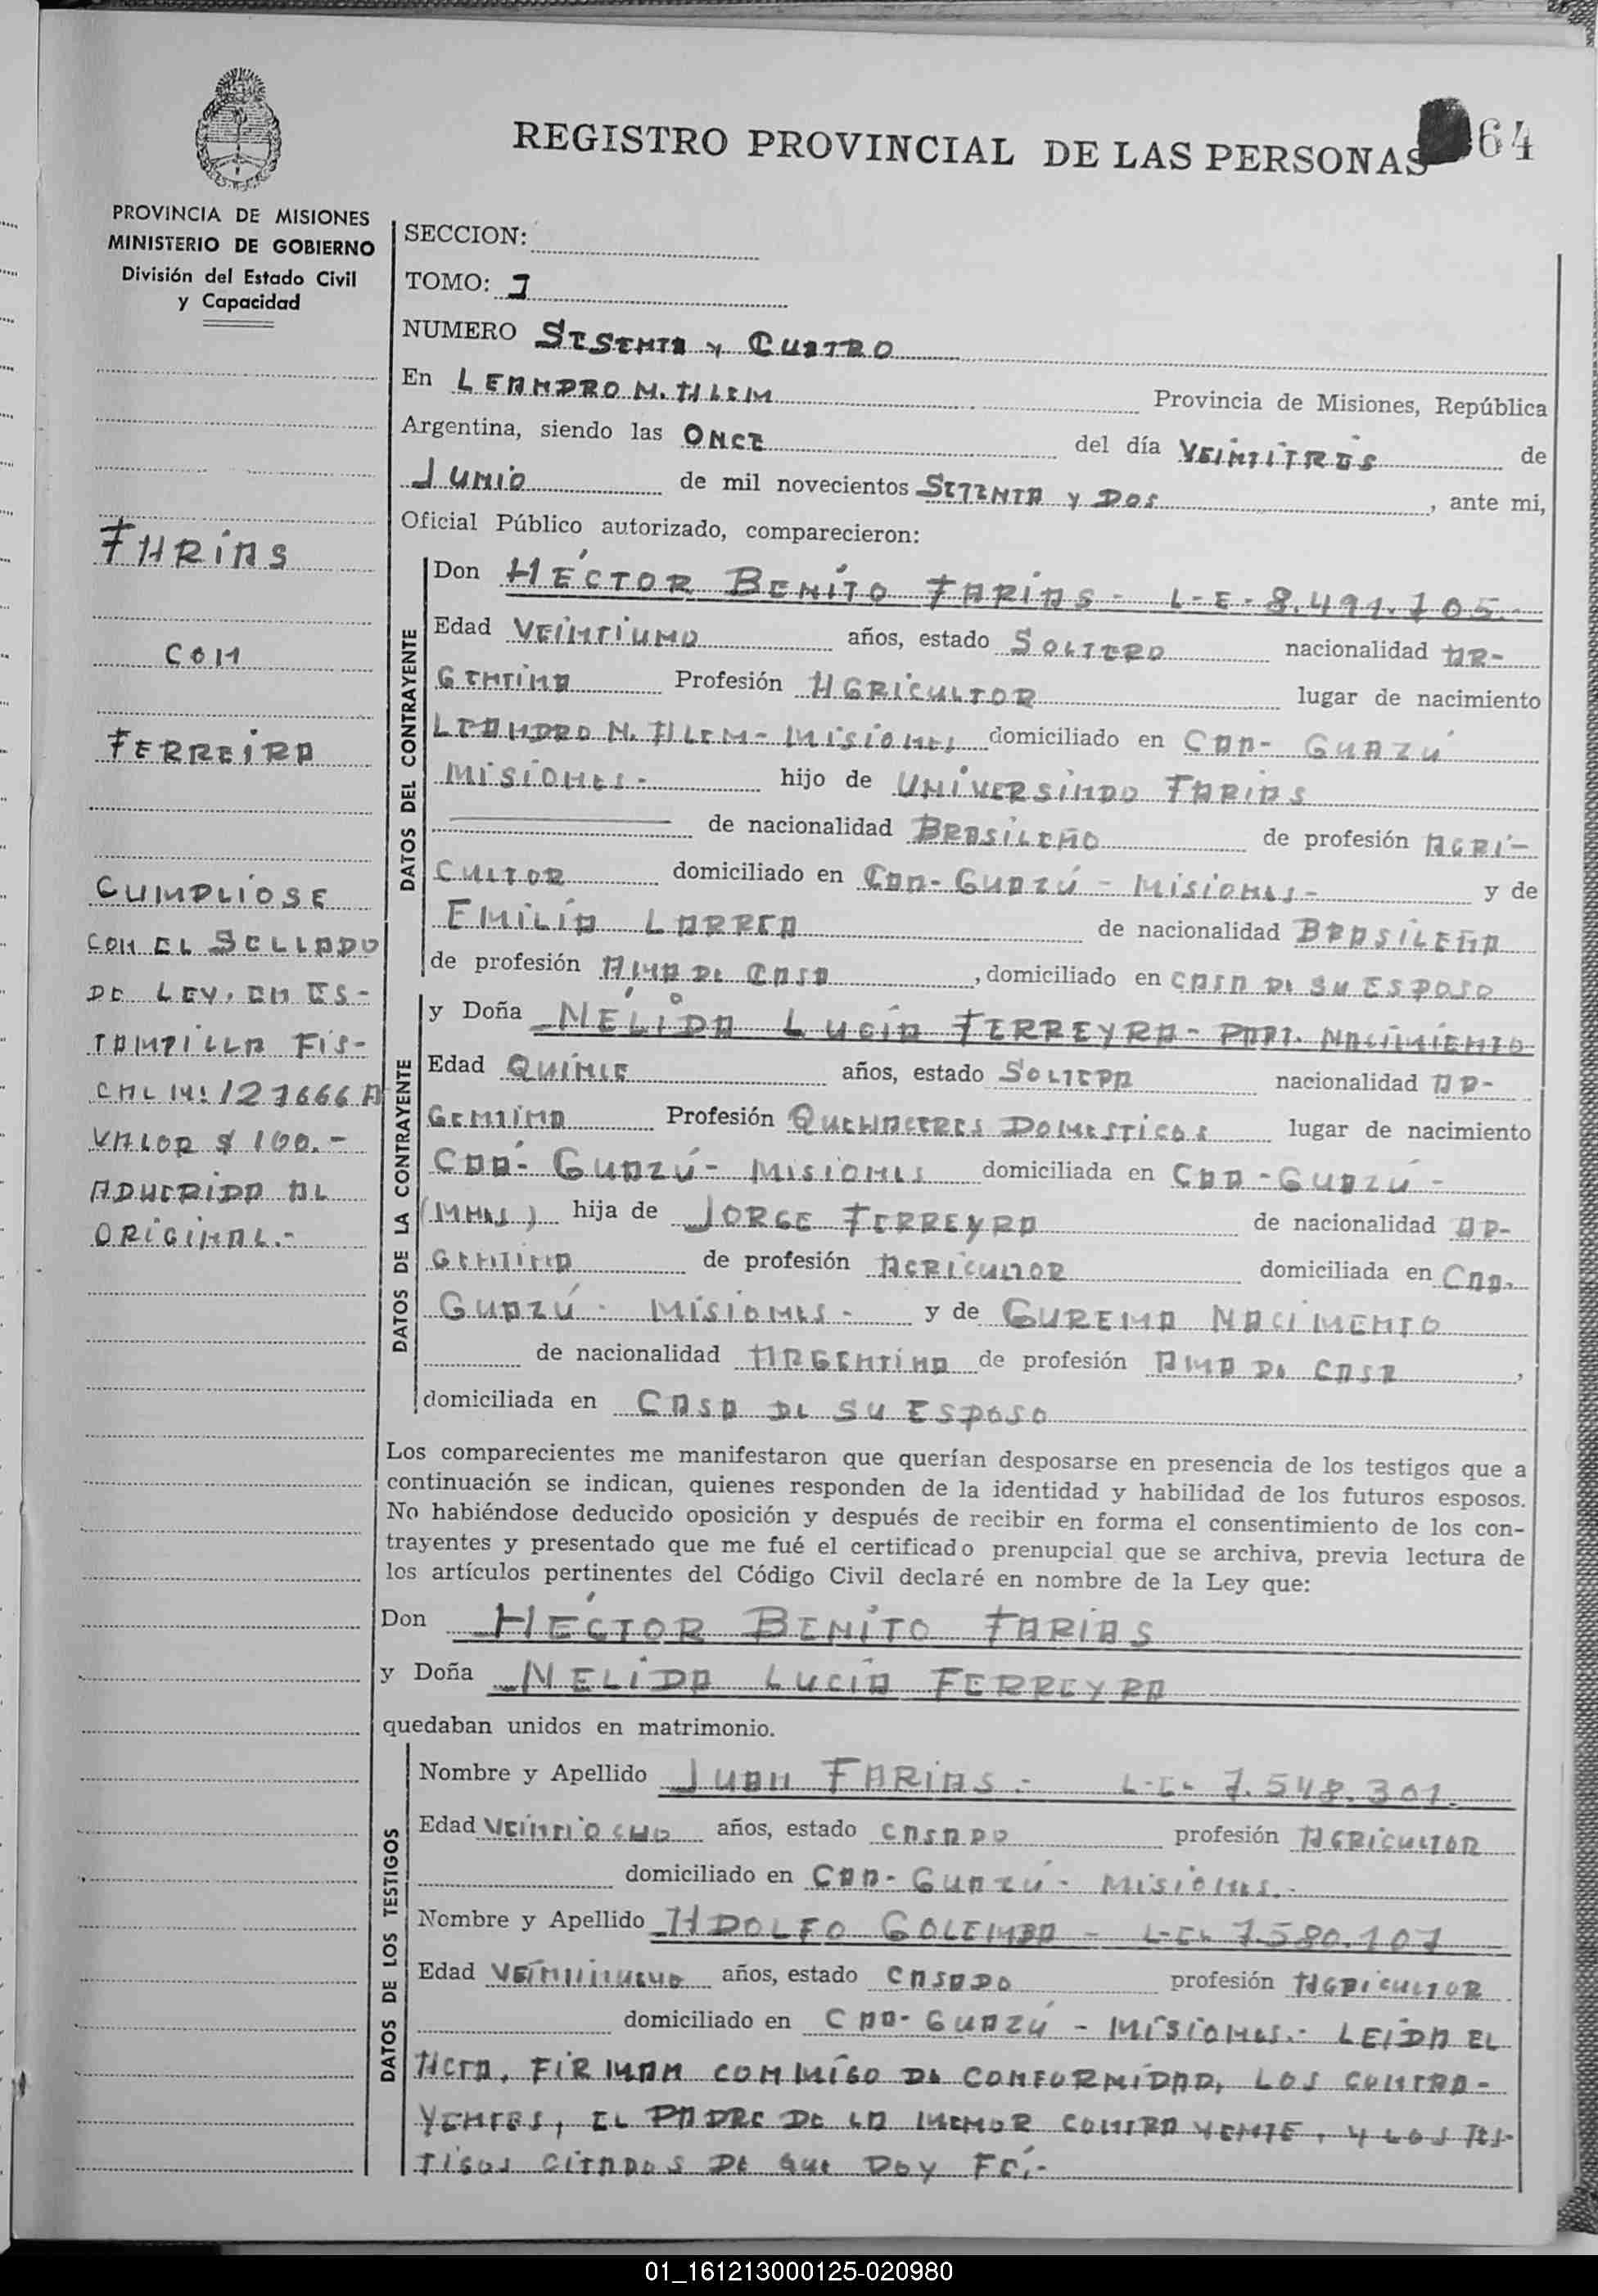 REGISTRO PROVINCIAL DE LAS PERSONAS 64
PROVINCIA DE MISIONES
MINISTERIO DE GOBIERNO
División del Estado Civil
y Capacidad
FARIAS
CON
FERREIRA
CUMPLIOSE
CON EL SELLADO
DE LEY, EN ES-
TAMPILLA FIS-
CAL Nº 127666 A
VALOR $ 100.-
ADHERIDA AL
ORIGINAL.-
SECCION:
TOMO: I
NUMERO SESENTA Y CUATRO
En LEANDRO N. ALEM Provincia de Misiones, República
Argentina, siendo las ONCE del día VEINTITRES de
JUNIO de mil novecientos SETENTA Y DOS, ante mi,
Oficial Público autorizado, comparecieron:
DATOS DEL CONTRAYENTE
Don HÉCTOR BENITO FARIAS - L-E-8.491.705.-
Edad VEINTIUNO años, estado SOLTERO nacionalidad AR-
GENTINA Profesión AGRICULTOR lugar de nacimiento
LEANDRO N. ALEM - MISIONES domiciliado en CAA-GUAZÚ
MISIONES.- hijo de UNIVERSINDO FARIAS
de nacionalidad BRASILEÑO de profesión AGRI-
CULTOR domiciliado en CAA-GUAZÚ - MISIONES- y de
EMILIA LARREA de nacionalidad BRASILEÑA
de profesión AMA DE CASA, domiciliado en CASA DE SU ESPOSO
DATOS DE LA CONTRAYENTE
y Doña NÉLIDA LUCIA FERREYRA- PART. NACIMIENTO
Edad QUINCE años, estado SOLTERA nacionalidad AR-
GENTINA Profesión QUEHACERES DOMESTICOS lugar de nacimiento
CAA-GUAZÚ- MISIONES domiciliada en CAA-GUAZÚ-
(MNES) hija de JORGE FERREYRA de nacionalidad AR-
GENTINA de profesión AGRICULTOR domiciliada en CAA-
GUAZÚ- MISIONES- y de GUREMA NACIMENTO
de nacionalidad ARGENTINA de profesión AMA DE CASA,
domiciliada en CASA DE SU ESPOSO
Los comparecientes me manifestaron que querían desposarse en presencia de los testigos que a
continuación se indican, quienes responden de la identidad y habilidad de los futuros esposos.
No habiéndose deducido oposición y después de recibir en forma el consentimiento de los con-
trayentes y presentado que me fué el certificado prenupcial que se archiva, previa lectura de
los artículos pertinentes del Código Civil declaré en nombre de la Ley que:
Don HÉCTOR BENITO FARIAS
y Doña NELIDA LUCIA FERREYRA
quedaban unidos en matrimonio.
DATOS DE LOS TESTIGOS
Nombre y Apellido JUAN FARIAS.- L-E- 7.548.301.
Edad VEINTIOCHO años, estado CASADO profesión AGRICULTOR
domiciliado en CAA-GUAZÚ- MISIONES.-
Nombre y Apellido ADOLFO GOLEMBA - L-E- 7.580.107
Edad VEINTINUEVE años, estado CASADO profesión AGRICULTOR
domiciliado en CAA-GUAZÚ - MISIONES.- LEIDA EL
ACTA, FIRMAN CONMIGO DE CONFORMIDAD, LOS CONTRA-
YENTES, EL PADRE DE LA MENOR CONTRAYENTE, Y LOS TES-
TIGOS CITADOS DE QUE DOY FÉ,-
01_161213000125-020980